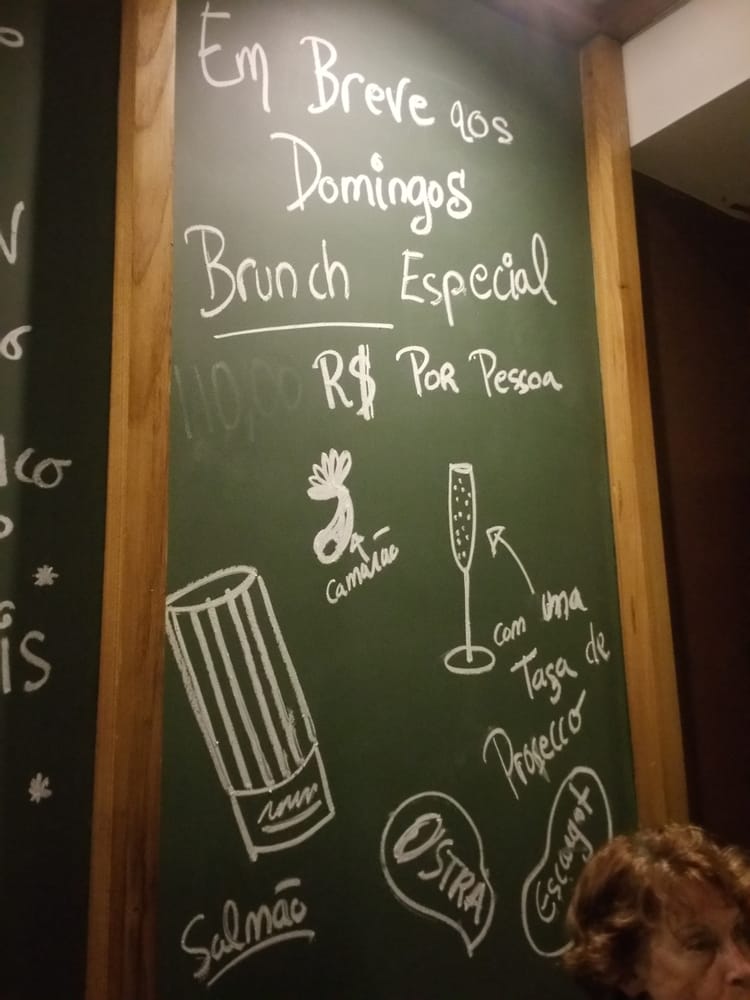 Em Breve aos
Domingos
Brunch Especial
110,00 R$ Por Pessoa
Camarão
com uma
Taça de
Prosecco
OSTRA
Escargot
Salmão